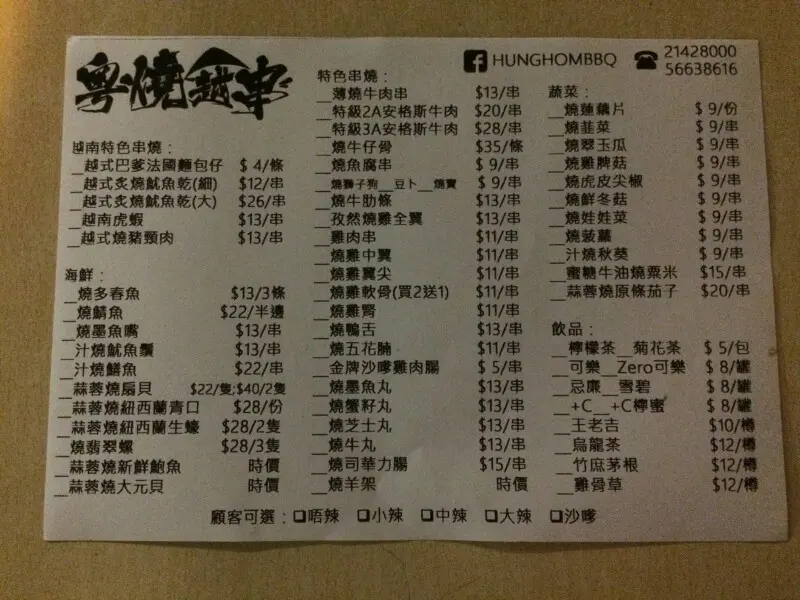 粵燒越串
HUNGHOMBBQ
21428000
56638616
越南特色串燒：
_越式巴爹法國麵包仔 $ 4/條
_越式炙燒魷魚乾(細) $12/串
_越式炙燒魷魚乾(大) $26/串
_越南虎蝦 $13/串
_越式燒豬頸肉 $13/串
海鮮：
_燒多春魚 $13/3條
_燒鯖魚 $22/半邊
_燒墨魚嘴 $13/串
_汁燒魷魚鬚 $13/串
_汁燒鱔魚 $22/串
_蒜蓉燒扇貝 $22/隻;$40/2隻
_蒜蓉燒紐西蘭青口 $28/份
_蒜蓉燒紐西蘭生蠔 $28/2隻
_燒翡翠螺 $28/3隻
_蒜蓉燒新鮮鮑魚 時價
_蒜蓉燒大元貝 時價
特色串燒：
_薄燒牛肉串 $13/串
_特級2A安格斯牛肉 $20/串
_特級3A安格斯牛肉 $28/串
_燒牛仔骨 $35/條
_燒魚腐串 $ 9/串
_燒獅子狗_豆卜_燒賣 $ 9/串
_燒牛肋條 $13/串
_孜然燒雞全翼 $13/串
_雞肉串 $11/串
_燒雞中翼 $11/串
_燒雞翼尖 $11/串
_燒雞軟骨(買2送1) $11/串
_燒雞腎 $11/串
_燒鴨舌 $13/串
_燒五花腩 $11/串
_金牌沙嗲雞肉腸 $ 5/串
_燒墨魚丸 $13/串
_燒蟹籽丸 $13/串
_燒芝士丸 $13/串
_燒牛丸 $13/串
_燒司華力腸 $15/串
_燒羊架 時價
蔬菜：
_燒蓮藕片 $ 9/份
_燒韮菜 $ 9/串
_燒翠玉瓜 $ 9/串
_燒雞脾菇 $ 9/串
_燒虎皮尖椒 $ 9/串
_燒鮮冬菇 $ 9/串
_燒娃娃菜 $ 9/串
_燒菠蘿 $ 9/串
_汁燒秋葵 $ 9/串
_蜜糖牛油燒粟米 $15/串
_蒜蓉燒原條茄子 $20/串
飲品：
_檸檬茶_菊花茶 $ 5/包
_可樂_Zero可樂 $ 8/罐
_忌廉_雪碧 $ 8/罐
_+C_+C檸蜜 $ 8/罐
_王老吉 $10/樽
_烏龍茶 $12/樽
_竹庶茅根 $12/樽
_雞骨草 $12/樽
顧客可選：❑唔辣 ❑小辣 ❑中辣 ❑大辣 ❑沙嗲